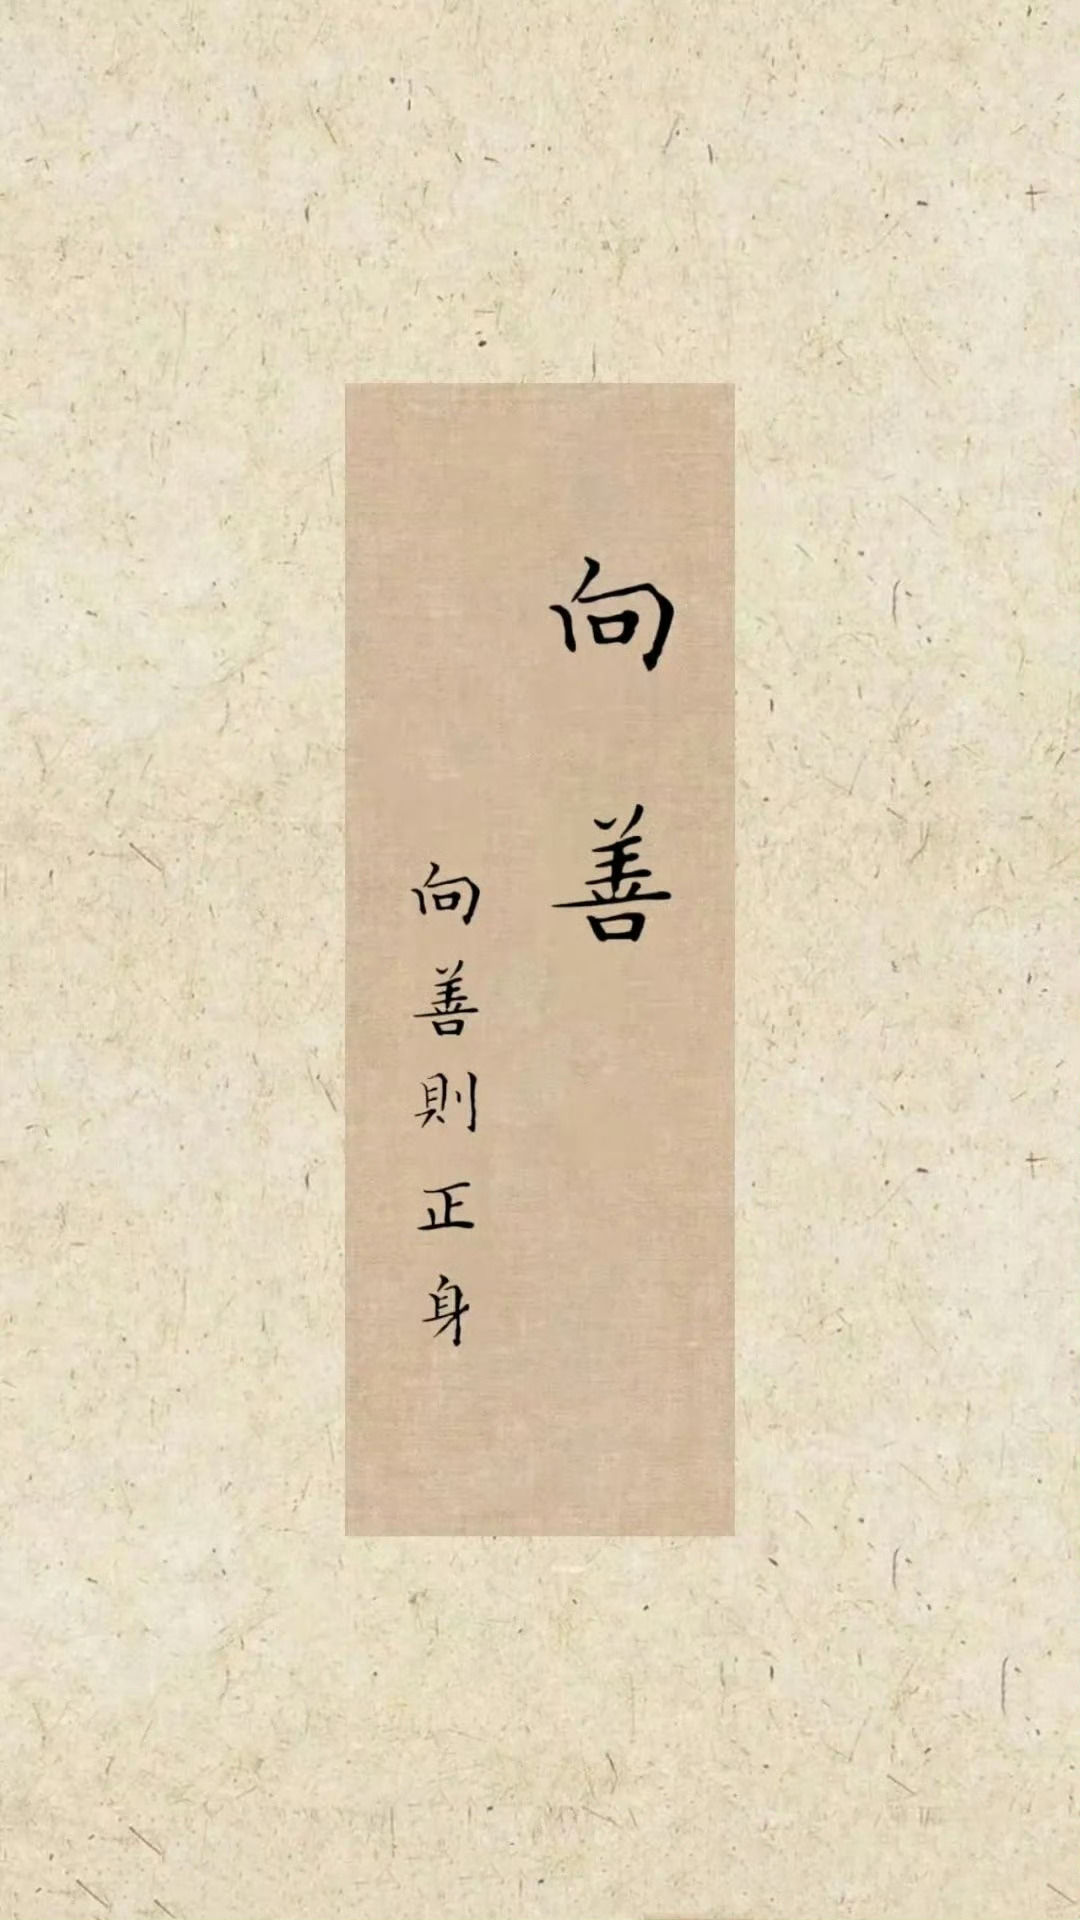 向善
向善則正身